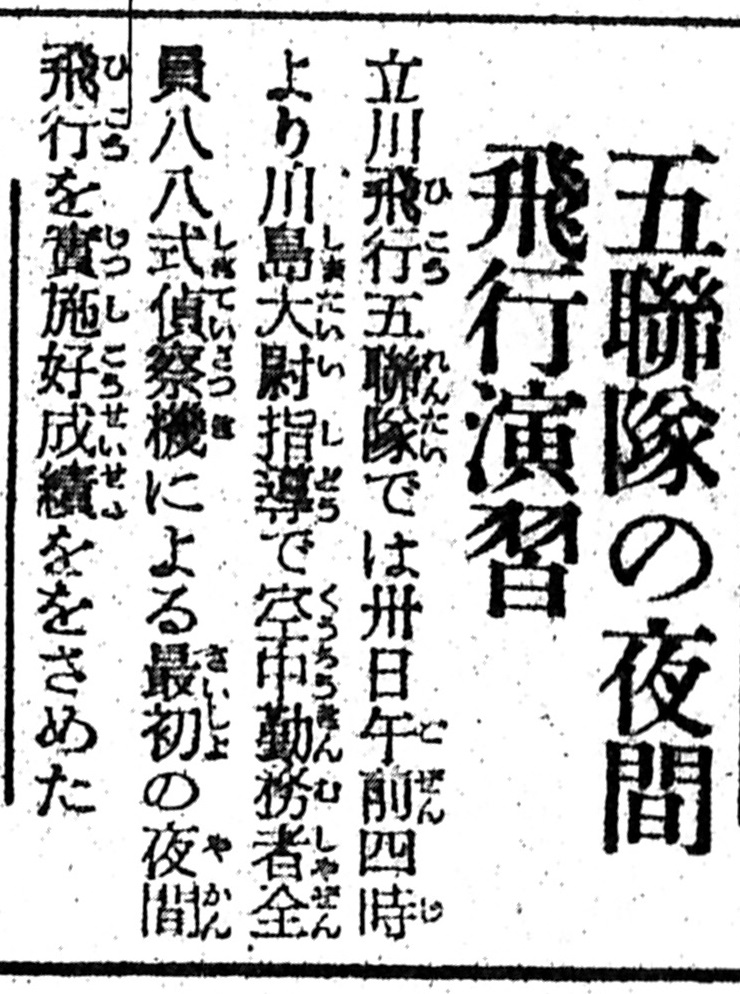 五聯隊の夜間
飛行演習
立川飛行五聯隊では卅日午前四時
より川島大尉指導で空中勤務者全
員八八式偵察機による最初の夜間
飛行を實施好成績ををさめた